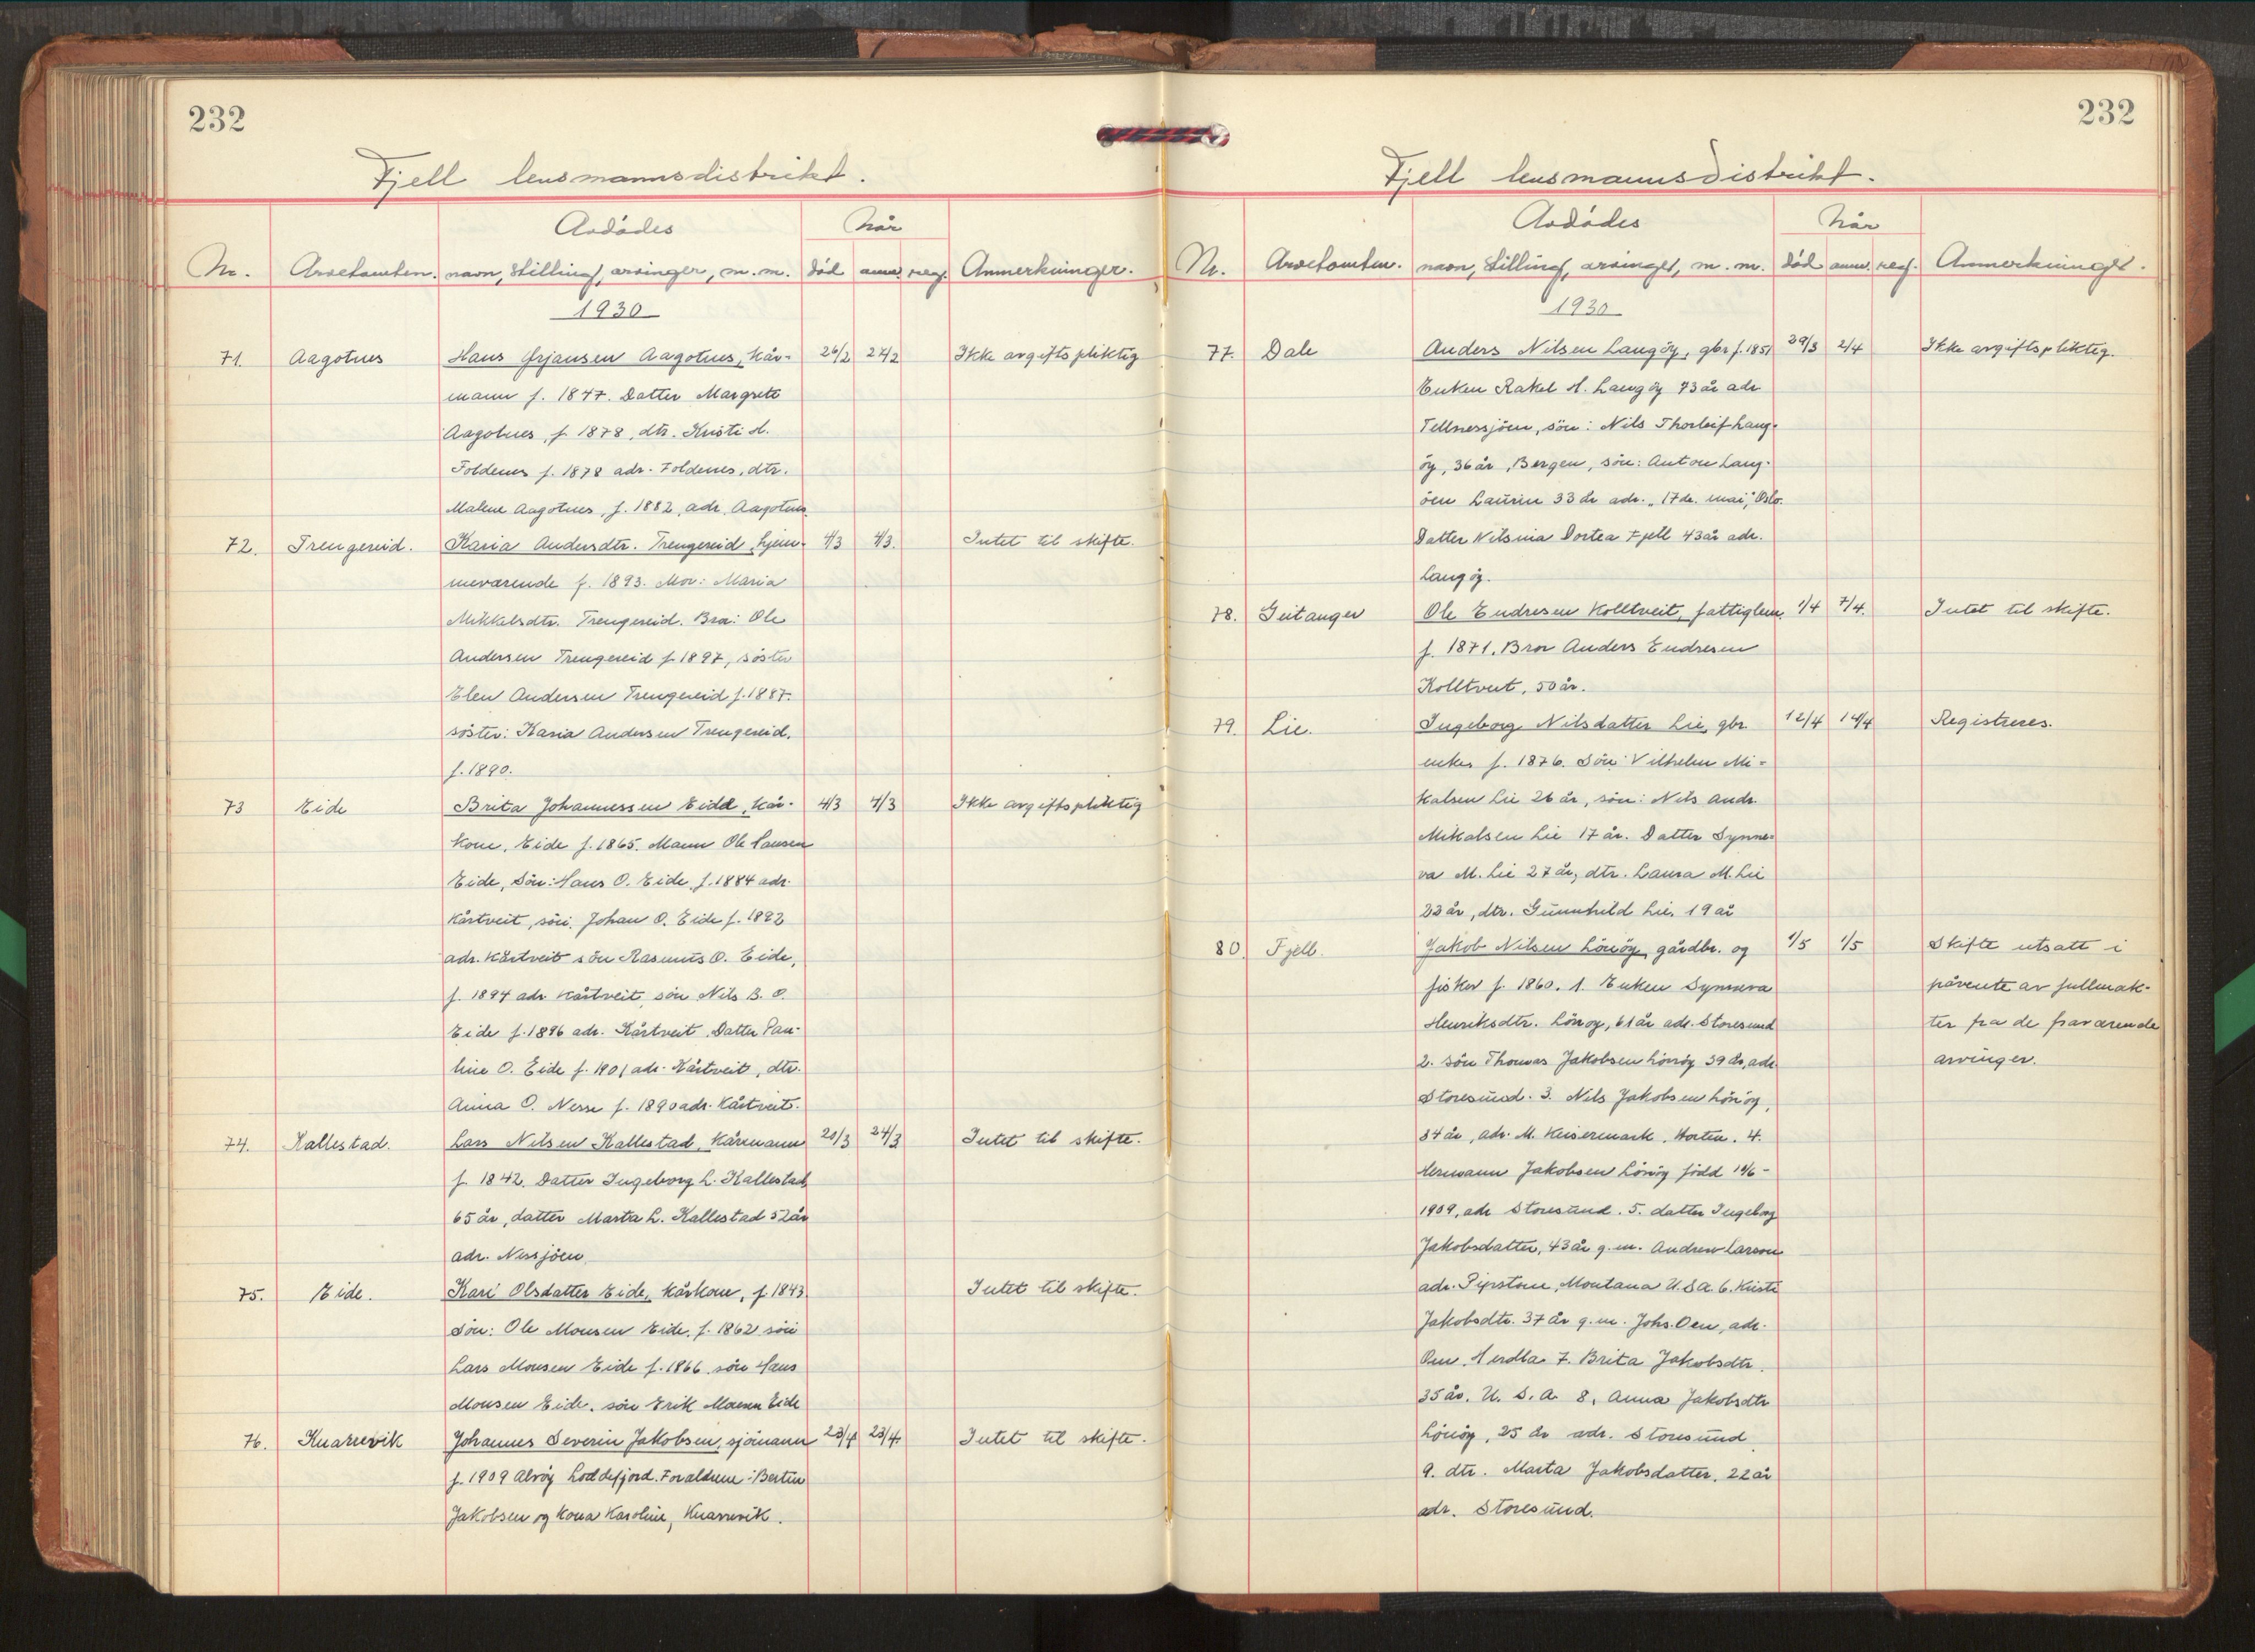 232
Fjell lensmannsdistrikt.
Avdødes
Når
Nr. Arvetomten. navn, stilling, arvinger, m. m. død anm. reg. Anmerkninger.
1930
71. Aagotnes Hans Ørjansen Aagotnes, kår- 26/2 27/2 Ikke avgiftspliktig
mann f. 1847. Datter Margrete
Aagotnes, f. 1878, dtr. Kristi H.
Foldenes f. 1878 adr. Foldenes, dtr.
Malene Aagotnes, f. 1882, adr. Aagotnes
72. Trengereid. Karia Andersdtr. Trengereid, hjem- 4/3 4/3. Intet til skifte.
meværende f. 1893. Mor: Maria
Mikkelsdtr. Trengereid. Bror: Ole
Andersen Trengereid f. 1897, søster
Elen Andersen Trengereid f. 1887.
søster: Karia Andersen Trengereid.
f. 1890.
73 Eide Brita Johannessen Eide, kår- 4/3 4/3 Ikke avgiftspliktig
kone, Eide f. 1865. Mann Ole Hansen
Eide, Søn: Hans O. Eide, f. 1884 adr.
Kårtveit, søn. Johan O. Eide f. 1892
adr. Kårtveit søn Rasmus O. Eide,
f. 1894 adr Kårtveit, søn Nils B. O.
Eide f. 1896 adr. Kårtveit. Datter Pau-
line O. Eide f. 1901 adr. Kårtveit, dtr.
Anna O. Nesse f. 1890 adr. Kårtveit.
74. Kallestad. Lars Nilsen Kallestad, kårmann 20/3 24/3 Intet til skifte.
f. 1842. Datter Ingeborg L. Kallestad
65 år, datter Marta L. Kallestad 52 år
adr. Nessjøen.
75. Eide. Kari Olsdatter Eide, kårkone, f. 1843. Intet til skifte.
Søn: Ole Monsen Eide, f. 1862 søn
Lars Monsen Eide f. 1866. søn Hans
Monsen Eide. søn Erik Monsen Eide
76. Knarrevik Johannes Severin Jakobsen, sjømann 23/4 23/4. Intet til skifte.
f. 1909 Alvøy Loddefjord. Foreldrene: Bertin
Jakobsen og kona Karoline, Knarrevik.
232
Fjell lensmannsdistrikt.
Avdødes
Når
Nr. Arvetomten. navn, stilling, arvinger, m. m. død anm. reg. Anmerkninger.
1930
77. Dale Anders Nilsen Langøy, gbr f. 1851 29/3 2/4 Ikke avgiftspliktig.
Enken Rakel H. Langøy 73 år adr
Tellnessjøen, søn: Nils Thorleif Lang-
øy, 36 år, Bergen, søn: Anton Lang-
øen Laurin 33 år adr. "17de. mai," Oslo.
Datter Nilsina Dortea Fjell 43 år adr.
Langøy.
78. Geitanger Ole Endresen Kolltveit, fattiglem. 1/4 7/4. Intet til skifte.
f. 1871. Bror Anders Endresen
Kolltveit, 50 år.
79. Lie. Ingeborg Nilsdatter Lie, gbr. 12/4 14/4 Registreres.
enke f. 1876. Søn: Vilhelm Mi-
kalsen Lie 26 år, søn: Nils Andr.
Mikalsen Lie 17 år. Datter Synne-
va M. Lie 27 år, dtr. Laura M. Lie
23 år, dtr. Gunnhild Lie. 19 år
80. Fjell. Jakob Nilsen Lønøy, gårdbr. og 1/5 1/5 Skifte utsatt i
fisker f. 1860. 1. Enken Synneva påvente av fullmak-
Henriksdtr. Lønøy, 61 år adr. Storesund ter fra de fraværende
2. søn Thomas Jakobsen Lønøy 39 år, adr. arvinger.
Storesund. 3. Nils Jakobsen Lønøy,
34 år, adr. M. Keisermark. Horten. 4.
Hermann Jakobsen Lønøy född 14/6-
1909, adr Storesund. 5. datter Ingeborg
Jakobsdatter, 43 år g. m. Andrew Larson
adr. Pipstone, Montana U.S.A. 6. Kristi
Jakobsdtr. 37 år g. m. Johs. Oen, adr.
Oen, Herdla 7. Brita Jakobsdtr.
35 år. U. S. A. 8. Anna Jakobsdtr
Lønøy, 25 år adr. Storesund.
9. dtr. Marta Jakobsdatter. 22 år
adr. Storesund.